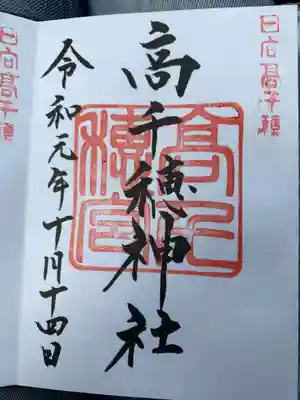 日向高千穂
高千穂神社
高千穂宮
令和元年十月十四日
日向高千穂